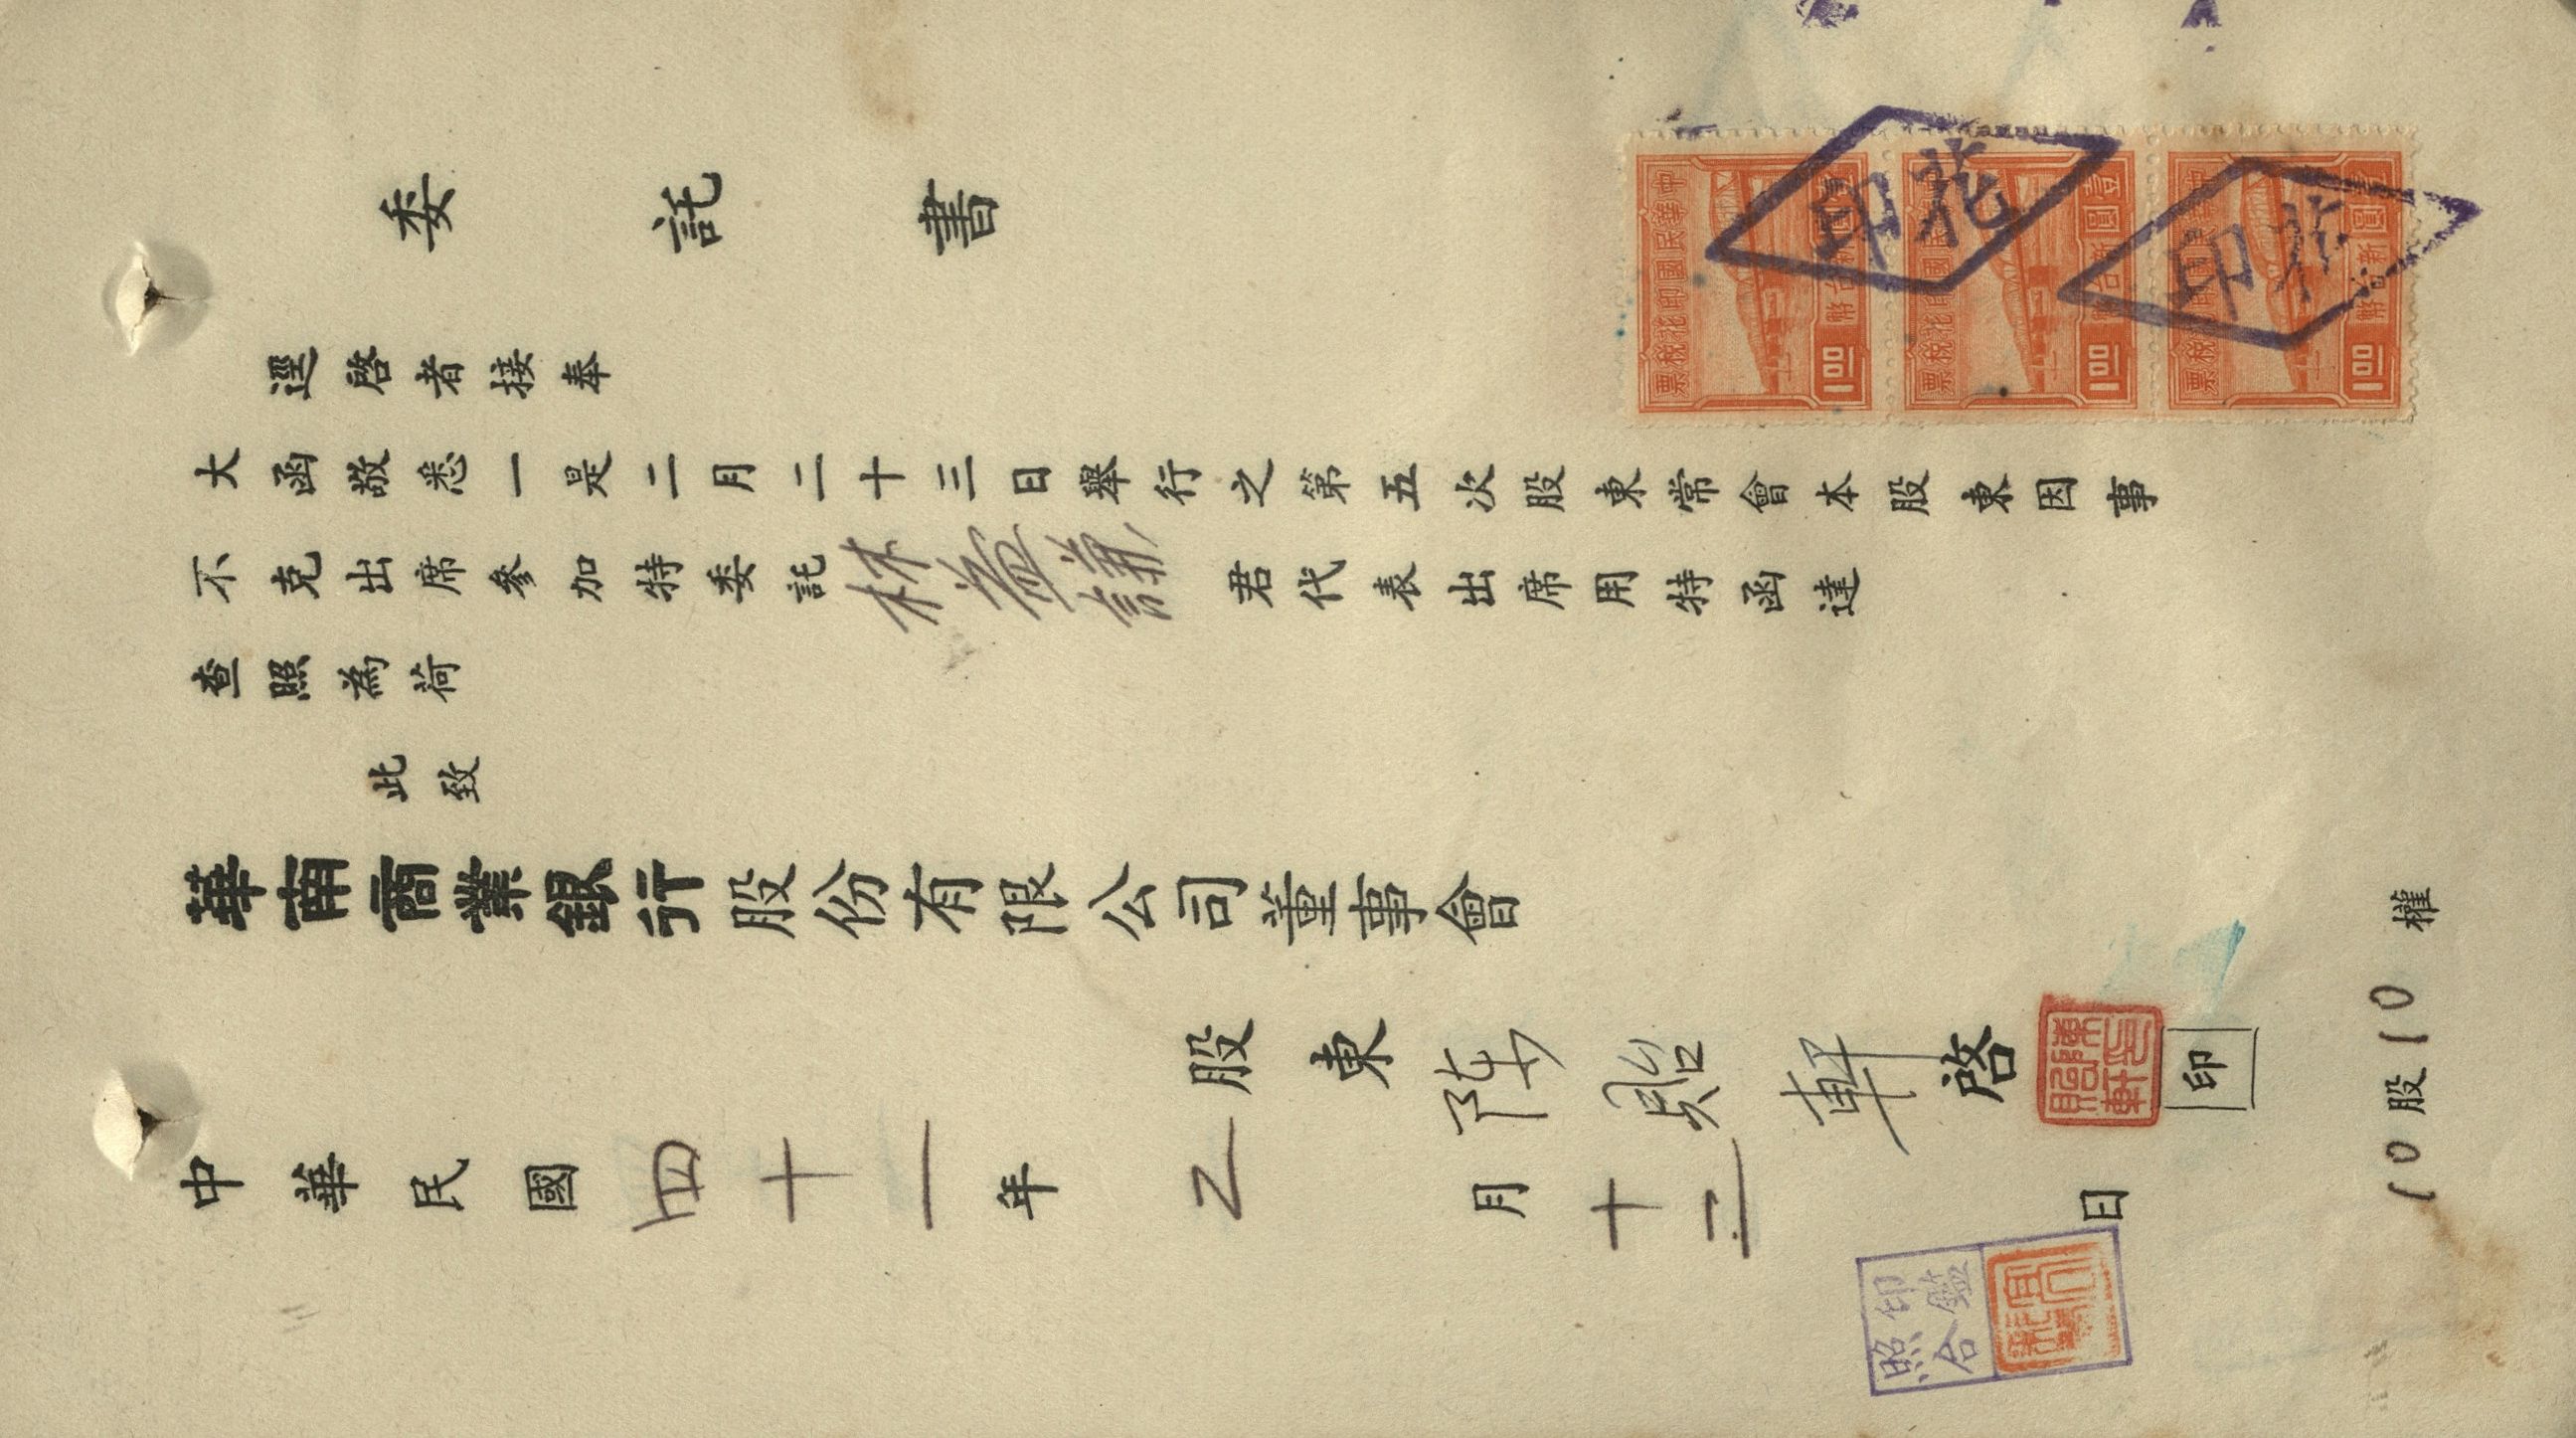 委託書
逕啓者接奉
大函敬悉一是二月二十三日舉行之第五次股東常會本股東因事
不克出席參加特委託林益謙君代表出席用特函達
查照為荷
此致
華南商業銀行股份有限公司董事會
股東陳貽軒啓
印
中華民國四十一年2月十二日
10股10權
中華民國印花稅票
壹圓新台幣
1.00
中華民國印花稅票
壹圓新台幣
1.00
中華民國印花稅票
壹圓新台幣
1.00
印花
印花
印鑑
照合